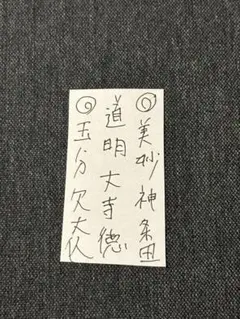 ◎美妙神条田
道明大寺徳
◎五分欠大仏